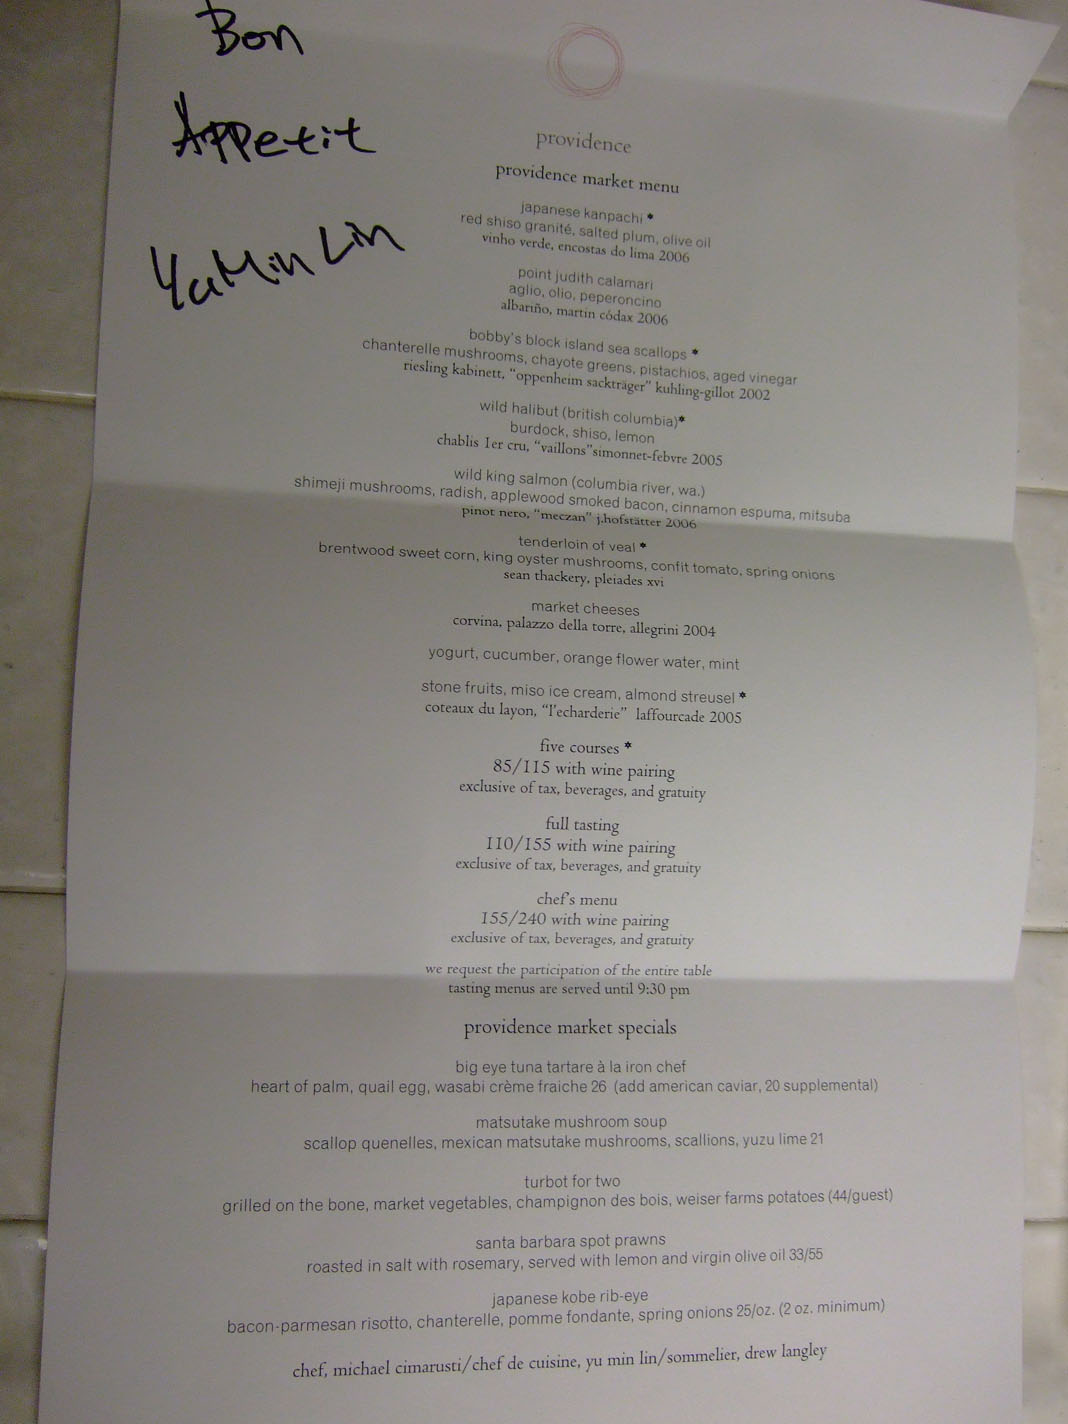 Bon
Appetit
YuMin Lin
providence
providence market menu
japanese kanpachi *
red shiso granité, salted plum, olive oil
vinho verde, encostas do lima 2006
point judith calamari
aglio, olio, peperoncino
albariño, martin códax 2006
bobby's block island sea scallops *
chanterelle mushrooms, chayote greens, pistachios, aged vinegar
riesling kabinett, "oppenheim sackträger" kuhling-gillot 2002
wild halibut (british columbia)*
burdock, shiso, lemon
chablis 1er cru, "vaillons"simonnet-febvre 2005
wild king salmon (columbia river, wa.)
shimeji mushrooms, radish, applewood smoked bacon, cinnamon espuma, mitsuba
pinot nero, "meczan" j.hofstätter 2006
tenderloin of veal *
brentwood sweet corn, king oyster mushrooms, confit tomato, spring onions
sean thackery, pleiades xvi
market cheeses
corvina, palazzo della torre, allegrini 2004
yogurt, cucumber, orange flower water, mint
stone fruits, miso ice cream, almond streusel *
coteaux du layon, "l'echarderie" laffourcade 2005
five courses *
85/115 with wine pairing
exclusive of tax, beverages, and gratuity
full tasting
110/155 with wine pairing
exclusive of tax, beverages, and gratuity
chef's menu
155/240 with wine pairing
exclusive of tax, beverages, and gratuity
we request the participation of the entire table
tasting menus are served until 9:30 pm
providence market specials
big eye tuna tartare à la iron chef
heart of palm, quail egg, wasabi crème fraiche 26 (add american caviar, 20 supplemental)
matsutake mushroom soup
scallop quenelles, mexican matsutake mushrooms, scallions, yuzu lime 21
turbot for two
grilled on the bone, market vegetables, champignon des bois, weiser farms potatoes (44/guest)
santa barbara spot prawns
roasted in salt with rosemary, served with lemon and virgin olive oil 33/55
japanese kobe rib-eye
bacon-parmesan risotto, chanterelle, pomme fondante, spring onions 25/oz. (2 oz. minimum)
chef, michael cimarusti/chef de cuisine, yu min lin/sommelier, drew langley